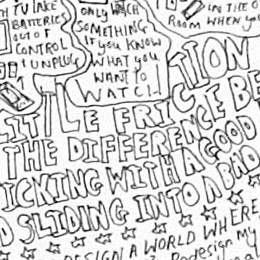 TV TAKE
BATTERIES
OUT OF
CONTROL
& UNPLUG
ONLY WATCH
SOMETHING
IF YOU KNOW
WHAT YOU
WANT TO
WATCH
IN THE O
ROOM WHEN YOU
TION
LITTLE FRICTION BE
THE DIFFERENCE BE
ICKING WITH A GOOD
D SLIDING INTO A BAD
DESIGN A WORLD WHERE
Redesign my